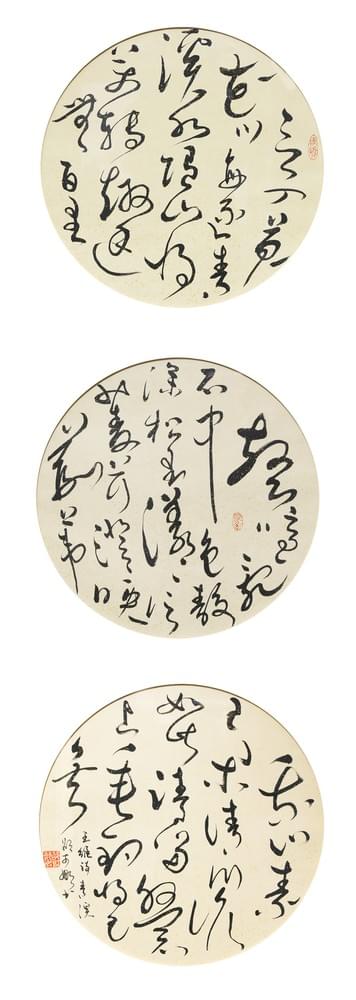 言入黄
花川每逐青
溪水随山将
万转趣途
無百里
聲喧亂
石中色静
深松里漾漾泛
菱荇澄澄映
葭苇
我心素
已闲清川澹
如此请留盘石
上垂钓将已
矣
王维诗青溪